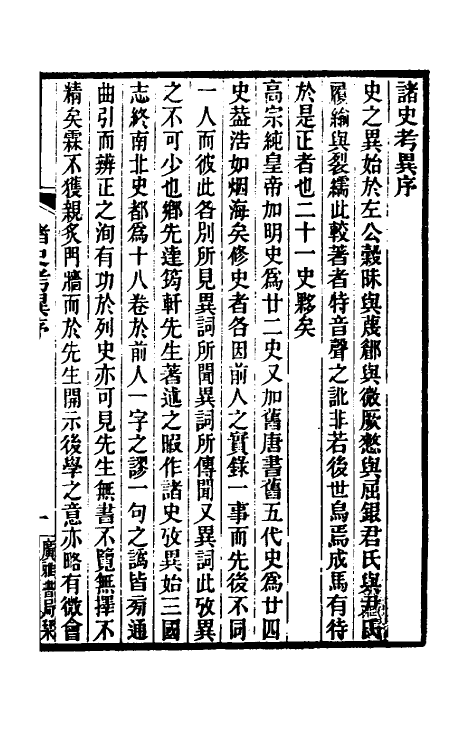 諸史考異序
史之異始於左公穀昧與蔑郿與微厥憖與屈銀君氏與尹氏
履緰與裂繻此較著者特音聲之訛非若後世烏焉成馬有待
於是正者也二十一史夥矣
高宗純皇帝加明史爲廿二史又加舊唐書舊五代史爲廿四
史葢浩如烟海矣修史者各因前人之實錄一事而先後不同
一人而彼此各別所見異詞所聞異詞所傳聞又異詞此攷異
之不可少也鄉先達筠軒先生著述之暇作諸史攷異始三國
志終南北史都爲十八卷於前人一字之謬一句之譌皆㫄通
曲引而辨正之洵有功於列史亦可見先生無書不覽無擇不
精矣霖不獲親炙門牆而於先生開示後學之意亦略有微會
諸史考異序
一
廣雅書局栞